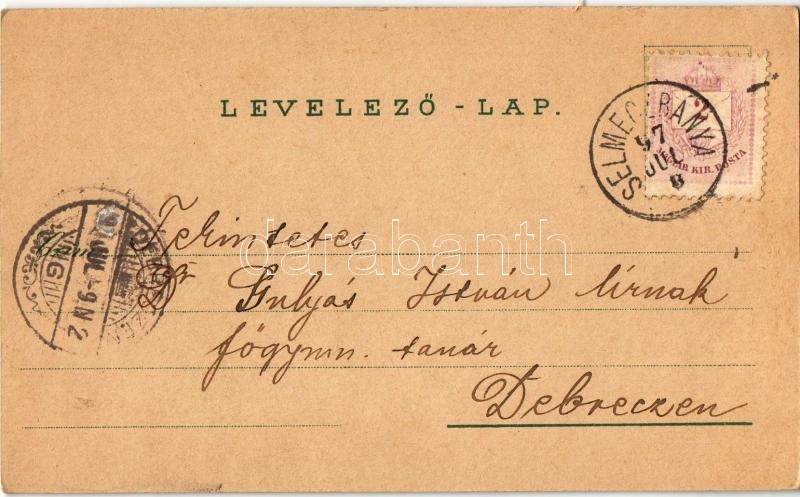 LEVELEZŐ - LAP.
2
MAGYAR KIR. POSTA
SELMECZBÁNYA
97
JUL
8
Tekintetes
Gulyás István Úrnak
főgymn. tanár
Debreczen
JUL. -9. N 2
darabanth